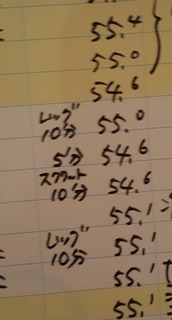 55.4
55.0
54.6
レッグ
10分 55.0
5分 54.6
スクワート
10分 54.6
55.1
レッグ
10分 55.1
55.1
55.1